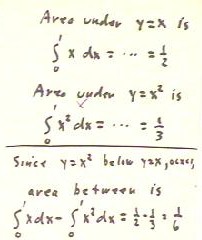 Area under y=x is
∫₀¹ x dx = ... = 1/2
Area under y=x² is
∫₀¹ x² dx = ... = 1/3
Since y=x² below y=x, 0≤x≤1,
area between is
∫₀¹ x dx - ∫₀¹ x² dx = 1/2 - 1/3 = 1/6